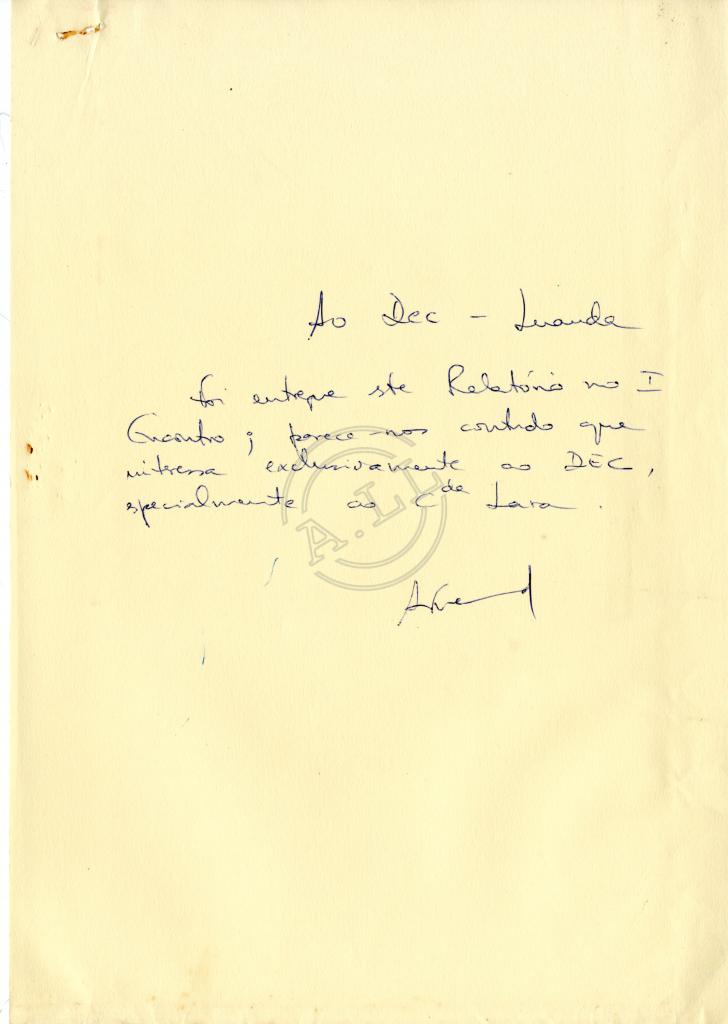 Ao Dec - Luanda
Foi entregue este Relatório no I
Encontro; parece-nos contudo que
interessa exclusivamente ao DEC,
especialmente ao Cda Lara.
A.LL